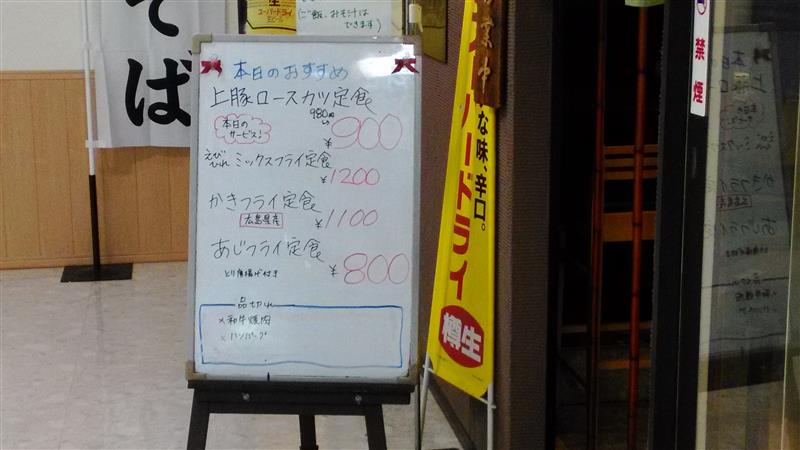 そば
スーパードライ
(ご飯、おみそ汁は
できます)
本日のおすすめ
上豚ロースカツ定食
本日の
サービス!
980円
¥900
えび
ひれ
ミックスフライ定食
¥1200
かきフライ定食
広島県産
¥1100
あじフライ定食
とり唐揚げ付き
¥800
品切れ
×和牛焼肉
×ハンバーグ
業中
な味、辛口。
ードライ
樽生
禁煙